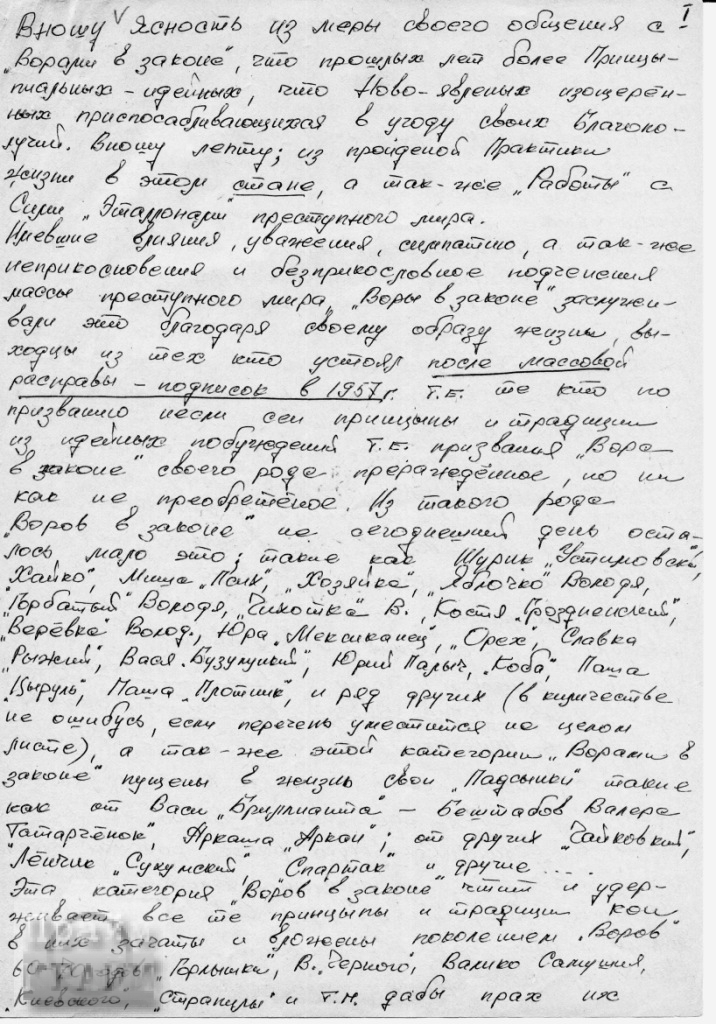 I
Вношу V Ясность из меры своего общения с
„Ворами в законе", что прошлых лет более Принцы-
пиальных – идейных, что Ново-явленых изощерён-
ных приспосабливающихая в угоду своих Благопо-
лучий. Вношу лепту; из пройденой Практики
жизни в этом стане, а так-же „Работы" с
Сими „Эталлонами" преступного мира.
Имевшие влияния, уважения, симпатию, а так-же
неприкосновения и безприкословное подчененния
массы преступного мира „Воры в законе" заслужи-
вали это благодаря своему образу жизни, вы-
ходцы из тех кто устоял после массовой
расправы – подписок в 1957 г. Т.Е. те кто по
призванию несли сеи принцыпы и традиции
из идейных побуждений Т.Е. призвания „Вора
в законе" своего рода прерождённое, но ни
как не преобретёное. Из такого рода
„Воров в законе" на сегоднешний день оста-
лось мало это; такие как Шурик „Устимовский",
„Хайко", Миша „Псих", „Хозяйка", „Яблочко" Володя,
„Горбатый" Володя, „Чихотка" В., Костя „Гроздненский",
„Верёвка" Волод., Юра „Мексиканец", „Орех", Славка
„Рыжий", Вася „Бузулуцкий", Юрий Палыч, „Коба", Паша
„Цыруль", Паша „Плотник", и ряд других (в количестве
не ошибусь, если перечень уместится на целом
листе), а так-же этой категории „Ворами в
законе" пущены в жизнь свои „Падсынки" такие
как от Васи „Бриллианта" – Бештабов Валера
Татарчёнок", Аркаша „Аркан"; от других „Чайковский",
„Лёнчик „Сухумский", „Спартак" и другие ....
Эта категория „Воров в законе" чтит и удер-
живает все те принцыпы и традиции кои
в них зачаты и вложены поколением „Воров"
„Горлышки", В. „Черного", Валико Самушия,
„Киевского", „Страпулы" и Т.П. дабы прах их